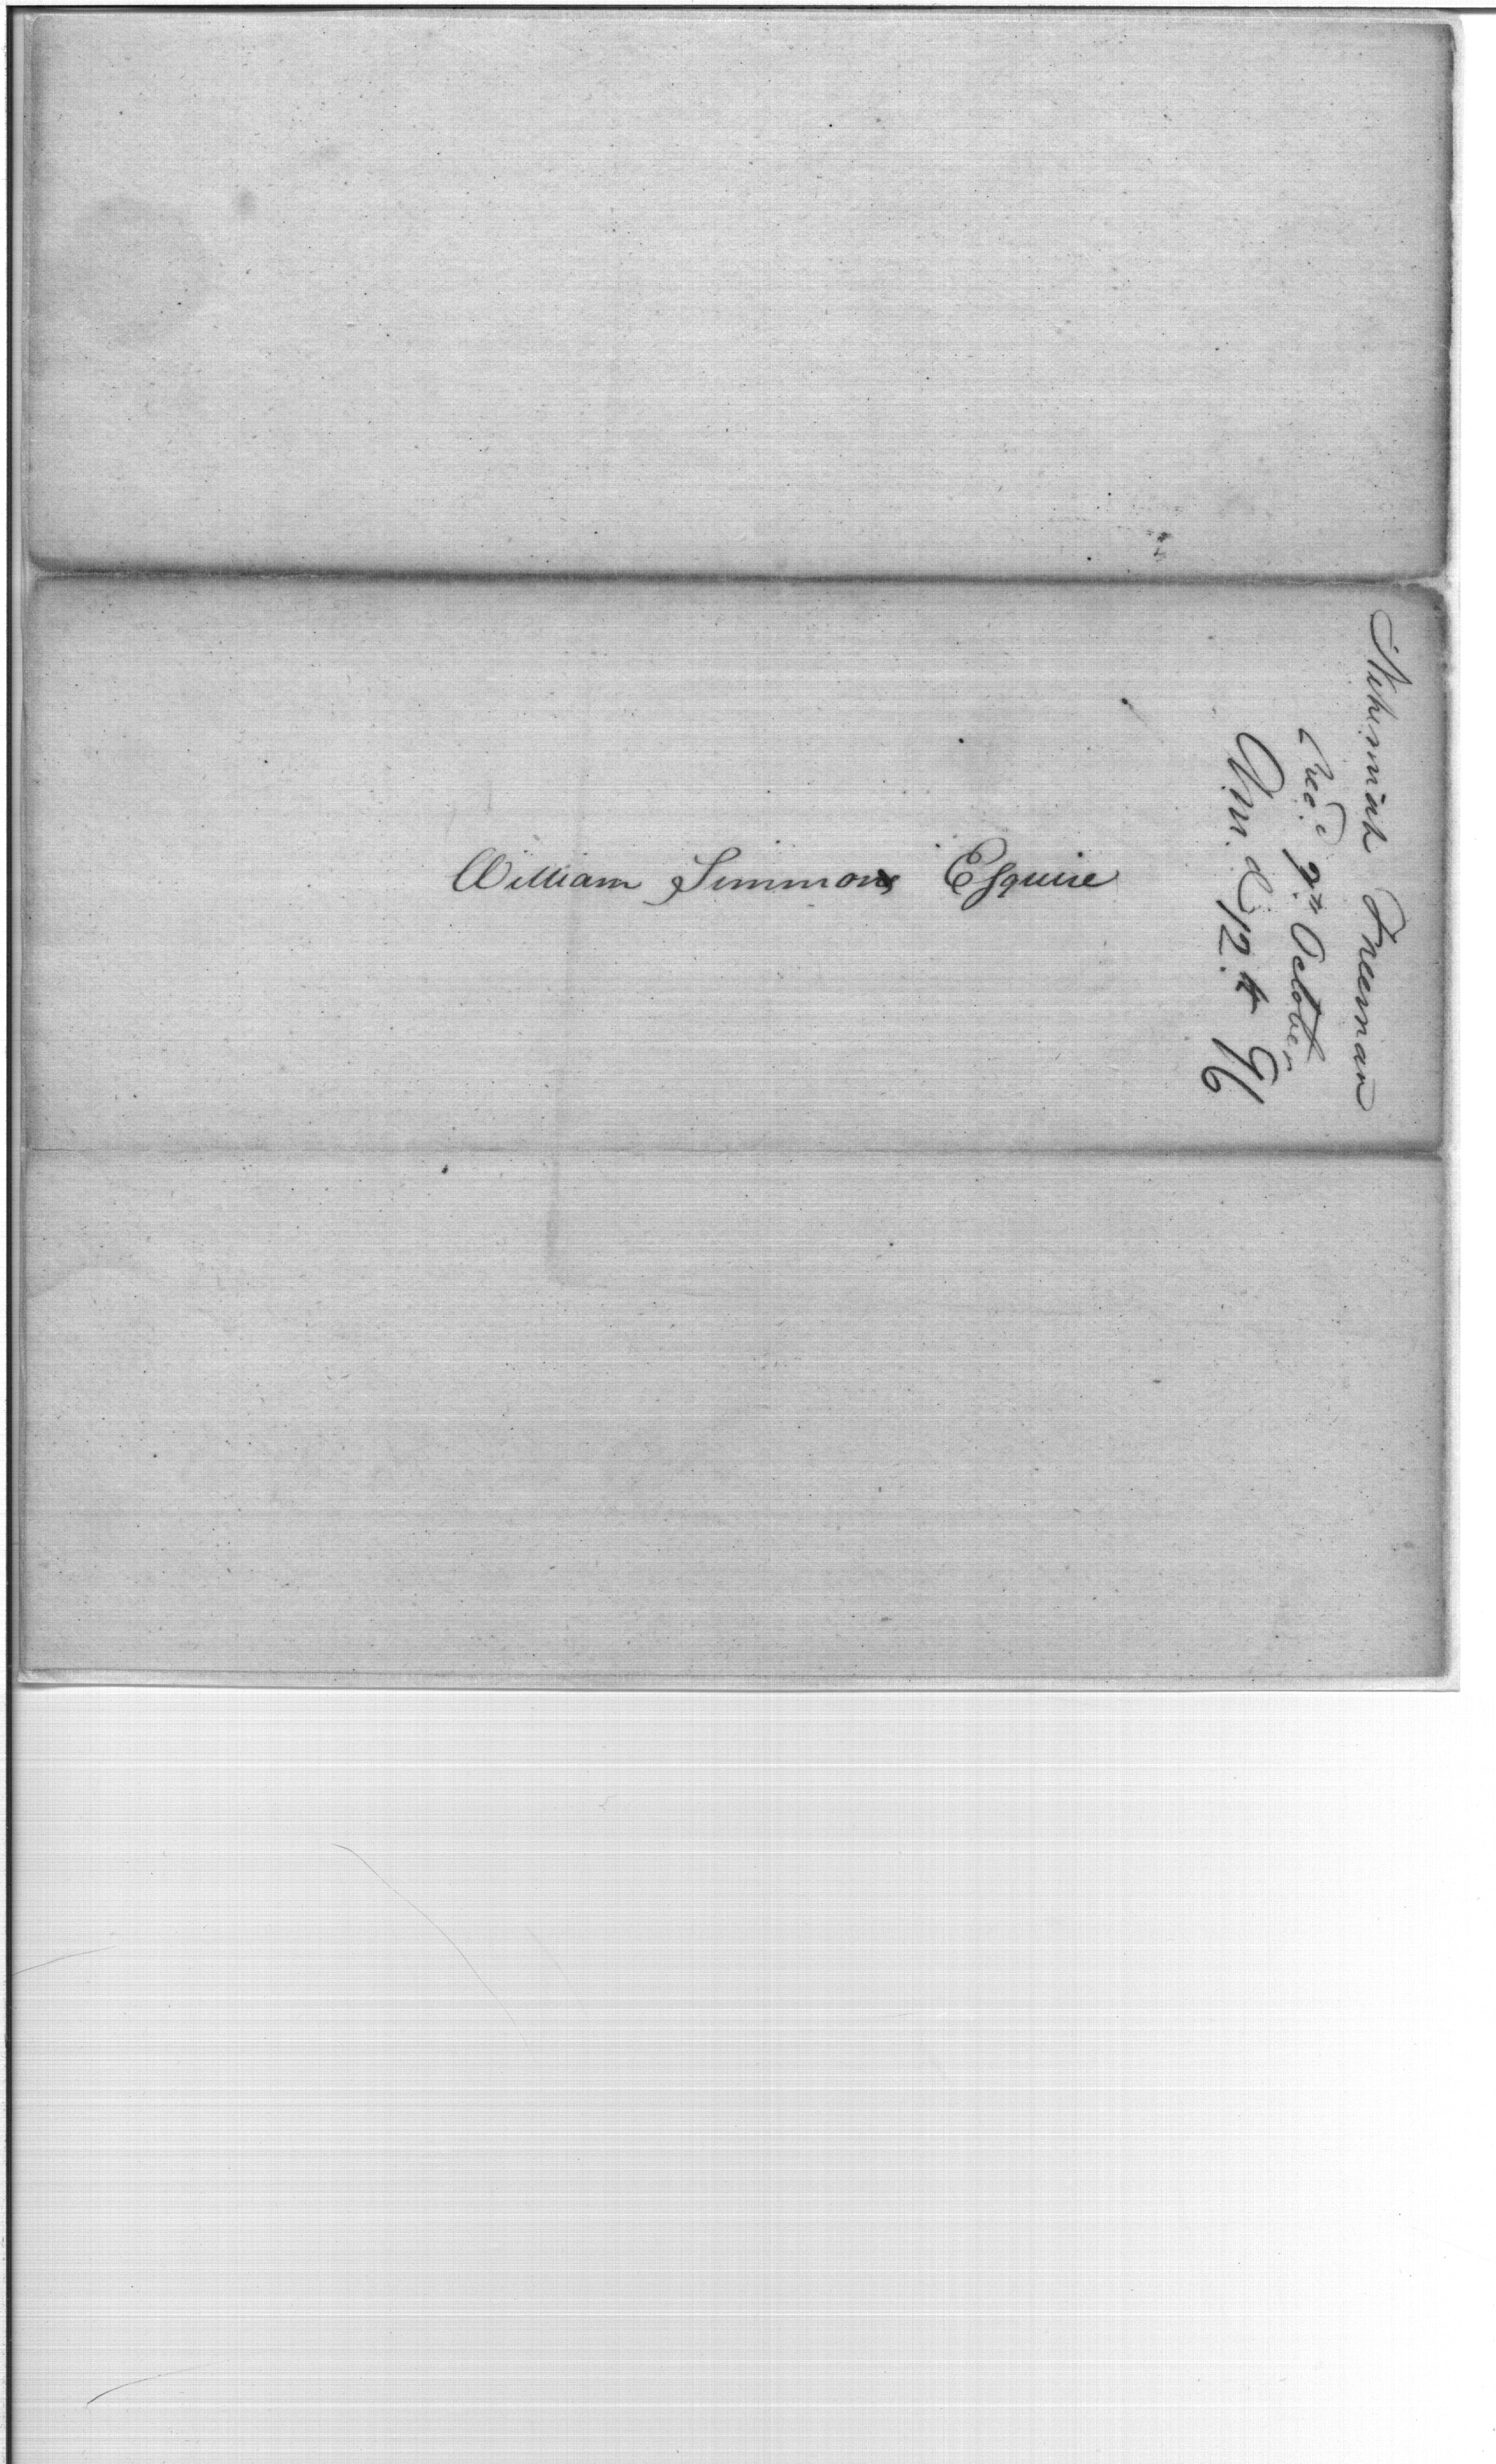 William Simmons Esquire
Nehemiah Freeman
Rec.d 9th October
An.d 12th 96